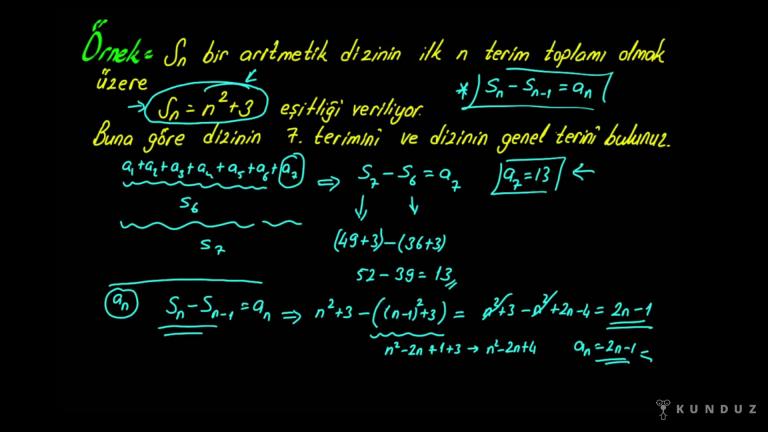 Örnek = Sn bir aritmetik dizinin ilk n terim toplamı olmak
üzere
* Sn - Sn-1 = an
→ Sn = n²+3 eşitliği veriliyor.
Buna göre dizinin 7. terimini ve dizinin genel terimi bulunuz.
a1+a2+a3+a4+a5+a6+a7 ⇒ S7 - S6 = a7 a7 = 13 ←
S6
S7
(49+3) - (36+3)
52 - 39 = 13
an Sn - Sn-1 = an ⇒ n²+3 - ((n-1)²+3) = n²+3 - n²+2n-4 = 2n-1
n²-2n+1+3 → n²-2n+4 an = 2n-1
KUNDUZ